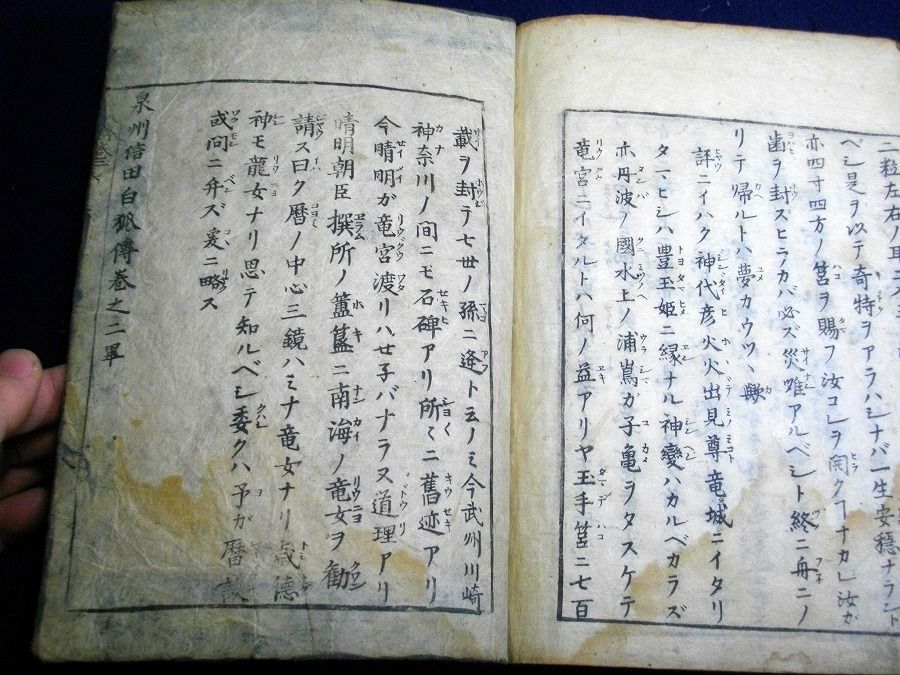 二粒左右ノ耳ニ入
ベシ是ヲ以テ奇特ヲアラハシナバ一生安穏ナラント
亦四寸四方ノ筥ヲ賜フ汝コレヲ開クヿナカレ汝ガ
歯ヲ封ズヒラカバ必ズ災难アルベシト終ニ舟ニノ
リテ帰ルトハ夢カウツヽ歟
評ニイハク神代彦火火出見尊竜城ニイタリ
タマヒシハ豊玉姫ニ縁ナル神變ハカルベカラズ
亦丹波ノ國水上ノ浦嶌ガ子亀ヲタスケテ
竜宮ニイタルトハ何ノ益アリヤ玉手筥ニ七百
載ヲ封テ七世ノ孫ニ逢ト云ノミ今武州川崎
神奈川ノ間ニモ石碑アリ所々ニ舊迹アリ
今晴明ガ竜宮渡リハせ子バナラヌ道理アリ
晴明朝臣撰所ノ簠簋ニ南海ノ竜女ヲ勧
請ス曰ク暦ノ中心三鏡ハミナ竜女ナリ歳德
神モ龍女ナリ思テ知ルベシ委クハ予が暦
或問ニ弁ズ爰ニ略ス
泉州信田白狐傳巻之二畢